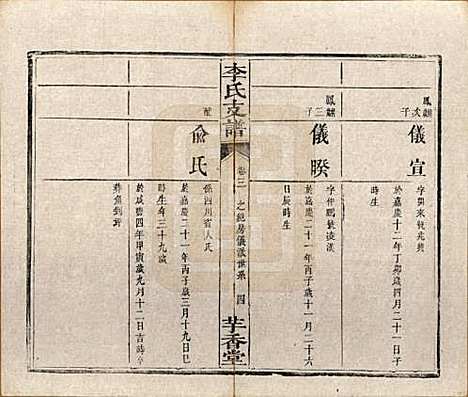 鳳麟次子
儀宣
字開來號兆
於嘉慶十二年丁卯歲四月二十一日子
時生
鳳麟三子
儀暌
字仲鵬號
於嘉慶二十一年丙子歲十一月二十六
日辰時生
李氏支譜
卷三
之純房儀派世系
四
芋香堂
配
俞氏
係四川省人氏
於嘉慶二十一年丙子歲三月十九日巳
時生年三十九歲
於咸豐四年甲寅歲九月十二日吉時
葬魚